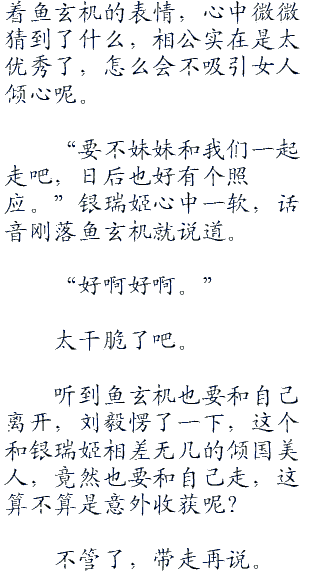 着鱼玄机的表情，心中微微
猜到了什么，相公实在是太
优秀了，怎么会不吸引女人
倾心呢。
“要不妹妹和我们一起
走吧，日后也好有个照
应。”银瑞姬心中一软，话
音刚落鱼玄机就说道。
“好啊好啊。”
太干脆了吧。
听到鱼玄机也要和自己
离开，刘毅愣了一下，这个
和银瑞姬相差无几的倾国美
人，竟然也要和自己走，这
算不算是意外收获呢？
不管了，带走再说。